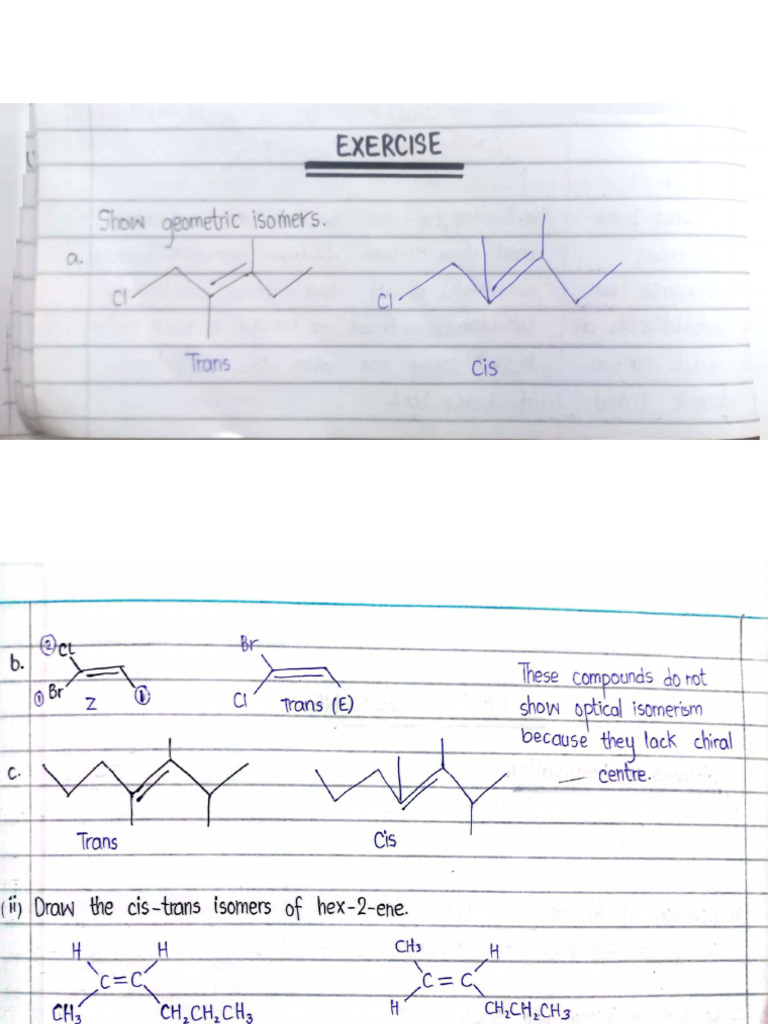 EXERCISE
Show geometric isomers.
a.
Cl
Cl
Trans
Cis
b.
② CL
① Br
Z
①
Br
Cl
Trans (E)
These compounds do not
show optical isomerism
because they lack chiral
centre.
c.
Trans
Cis
(ii) Draw the cis-trans isomers of hex-2-ene.
H H
C=C
CH₃ CH₂CH₂CH₃
CH₃ H
C=C
H CH₂CH₂CH₃